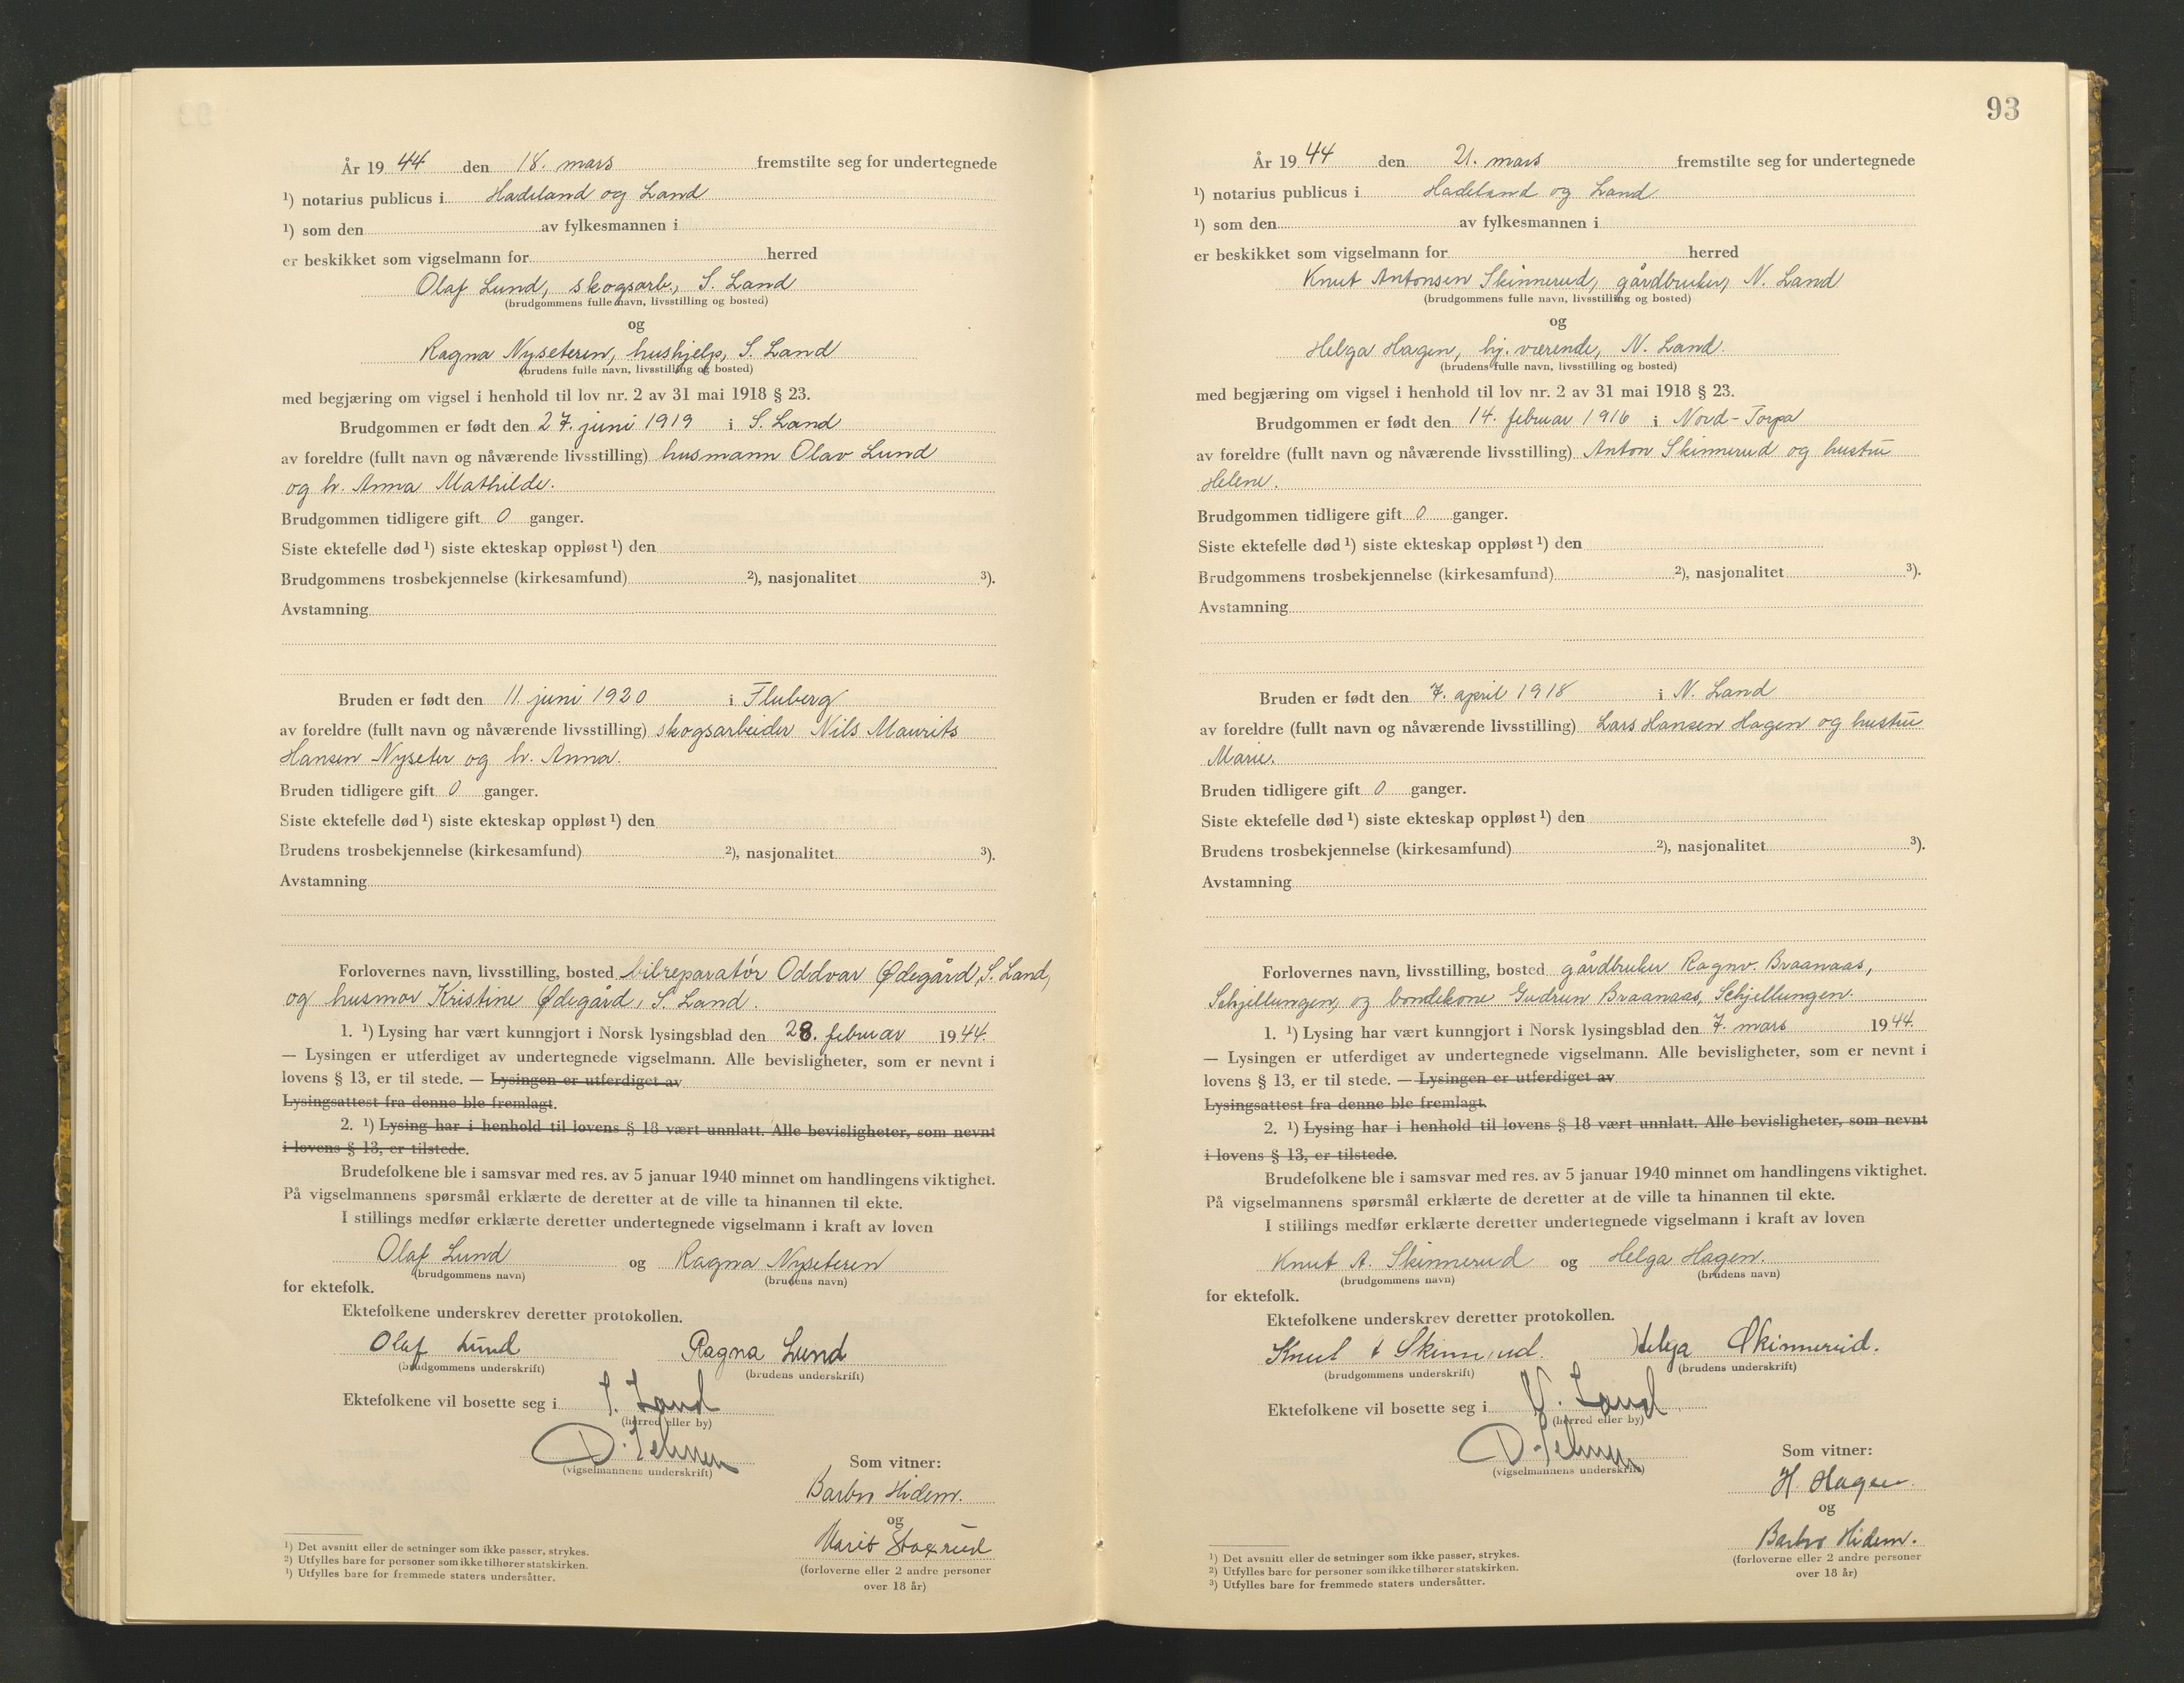 År 1944 den 18. mars fremstilte seg for undertegnede
¹) notarius publicus i Hadeland og Land
¹) som den av fylkesmannen i
er beskikket som vigselmann for herred
Olaf Lund, skogsarb., S. Land
(brudgommens fulle navn, livsstilling og bosted)
og
Ragna Nyseteren, hushjelp, S. Land
(brudens fulle navn, livsstilling og bosted)
med begjæring om vigsel i henhold til lov nr. 2 av 31 mai 1918 § 23.
Brudgommen er født den 27. juni 1919 i S. Land
av foreldre (fullt navn og nåværende livsstilling) husmann Olav Lund
og h. Anna Mathilde.
Brudgommen tidligere gift 0 ganger.
Siste ektefelle død ¹) siste ekteskap oppløst ¹) den
Brudgommens trosbekjennelse (kirkesamfund) ²), nasjonalitet ³).
Avstamning
Bruden er født den 11. juni 1920 i Fluberg
av foreldre (fullt navn og nåværende livsstilling) skogsarbeider Nils Maurits
Hansen Nyseter og h. Anna.
Bruden tidligere gift 0 ganger.
Siste ektefelle død ¹) siste ekteskap oppløst ¹) den
Brudens trosbekjennelse (kirkesamfund) ²), nasjonalitet ³).
Avstamning
Forlovernes navn, livsstilling, bosted bilreparatør Oddvar Ødegård, S. Land,
og husmor Kristine Ødegård, S. Land.
1. ¹) Lysing har vært kunngjort i Norsk lysingsblad den 28. februar 1944.
— Lysingen er utferdiget av undertegnede vigselmann. Alle bevisligheter, som er nevnt i
lovens § 13, er til stede. — Lysingen er utferdiget av
Lysingsattest fra denne ble fremlagt.
2. ¹) Lysing har i henhold til lovens § 18 vært unnlatt. Alle bevisligheter, som nevnt
i lovens § 13, er tilstede.
Brudefolkene ble i samsvar med res. av 5 januar 1940 minnet om handlingens viktighet.
På vigselmannens spørsmål erklærte de deretter at de ville ta hinannen til ekte.
I stillings medfør erklærte deretter undertegnede vigselmann i kraft av loven
Olaf Lund og Ragna Nyseteren
(brudgommens navn) (brudens navn)
for ektefolk.
Ektefolkene underskrev deretter protokollen.
Olaf Lund Ragna Lund
(brudgommens underskrift) (brudens underskrift)
Ektefolkene vil bosette seg i S. Land
(herred eller by)
(vigselmannens underskrift)
Som vitner:
Barbro Hidem.
og
Marit Staxrud
(forloverne eller 2 andre personer
over 18 år)
¹) Det avsnitt eller de setninger som ikke passer, strykes.
²) Utfylles bare for personer som ikke tilhører statskirken.
³) Utfylles bare for fremmede staters undersåtter.
93
År 1944 den 21. mars fremstilte seg for undertegnede
¹) notarius publicus i Hadeland og Land
¹) som den av fylkesmannen i
er beskikket som vigselmann for herred
Knut Antonsen Skinnerud, gårdbruker, N. Land
(brudgommens fulle navn, livsstilling og bosted)
og
Helga Hagen, hj. værende, N. Land.
(brudens fulle navn, livsstilling og bosted)
med begjæring om vigsel i henhold til lov nr. 2 av 31 mai 1918 § 23.
Brudgommen er født den 14. februar 1916 i Nord-Torpa
av foreldre (fullt navn og nåværende livsstilling) Anton Skinnerud og hustru
Helene.
Brudgommen tidligere gift 0 ganger.
Siste ektefelle død ¹) siste ekteskap oppløst ¹) den
Brudgommens trosbekjennelse (kirkesamfund) ²), nasjonalitet ³).
Avstamning
Bruden er født den 7. april 1918 i N. Land
av foreldre (fullt navn og nåværende livsstilling) Lars Hansen Hagen og hustru
Marie.
Bruden tidligere gift 0 ganger.
Siste ektefelle død ¹) siste ekteskap oppløst ¹) den
Brudens trosbekjennelse (kirkesamfund) ²), nasjonalitet ³).
Avstamning
Forlovernes navn, livsstilling, bosted gårdbruker Ragnv. Braanaas,
Schjellungen, og bondekone Gudrun Braanaas, Schjellungen.
1. ¹) Lysing har vært kunngjort i Norsk lysingsblad den 7. mars 1944.
— Lysingen er utferdiget av undertegnede vigselmann. Alle bevisligheter, som er nevnt i
lovens § 13, er til stede. — Lysingen er utferdiget av
Lysingsattest fra denne ble fremlagt.
2. ¹) Lysing har i henhold til lovens § 18 vært unnlatt. Alle bevisligheter, som nevnt
i lovens § 13, er tilstede.
Brudefolkene ble i samsvar med res. av 5 januar 1940 minnet om handlingens viktighet.
På vigselmannens spørsmål erklærte de deretter at de ville ta hinannen til ekte.
I stillings medfør erklærte deretter undertegnede vigselmann i kraft av loven
Knut A. Skinnerud og Helga Hagen.
(brudgommens navn) (brudens navn)
for ektefolk.
Ektefolkene underskrev deretter protokollen.
Knut A Skinnerud. Helga Skinnerud.
(brudgommens underskrift) (brudens underskrift)
Ektefolkene vil bosette seg i N. Land
(herred eller by)
(vigselmannens underskrift)
Som vitner:
H. Hagen
og
Barbro Hidem.
(forloverne eller 2 andre personer
over 18 år)
¹) Det avsnitt eller de setninger som ikke passer, strykes.
²) Utfylles bare for personer som ikke tilhører statskirken.
³) Utfylles bare for fremmede staters undersåtter.